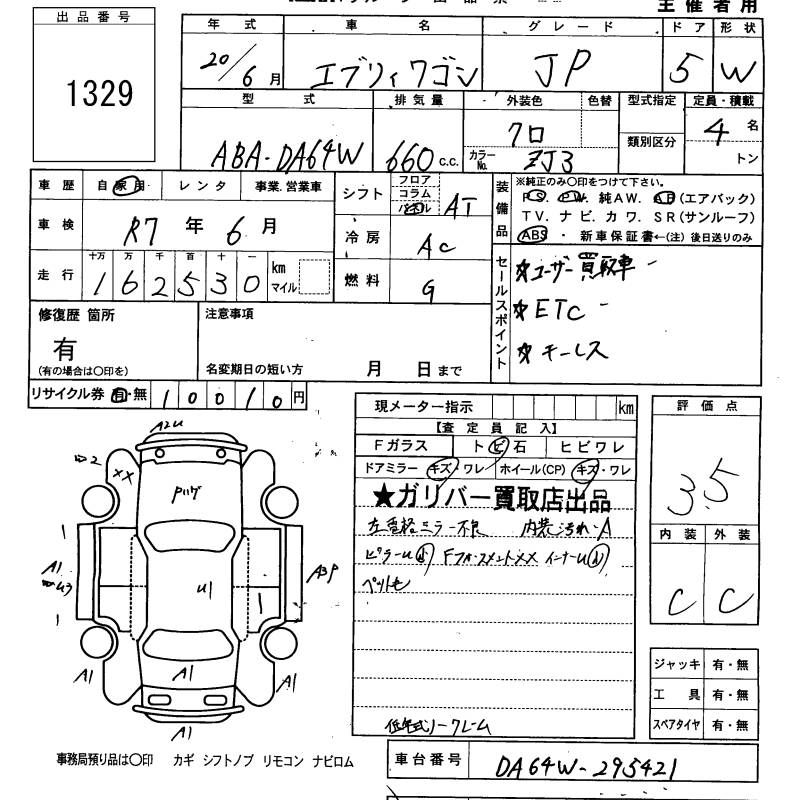 主催者用
出品番号
1329
年式 車名 グレード ドア 形状
20/6月 エブリィワゴン JP 5 W
型式 排気量 外装色 色替 型式指定 定員・積載
類別区分
ABA-DA64W 660 c.c. クロ カラーNo. ZJ3 4名
トン
車歴 自家用 レンタ 事業.営業車
車検 R7年6月
走行 十万 万 千 百 十 一
162530 km マイル
シフト フロア コラム パネル AT
冷房 AC
燃料 G
装備品 ※純正のみ〇印をつけて下さい。
PS. PW. 純AW. AB(エアバック)
TV. ナビ. カワ. SR(サンルーフ)
ABS ・ 新車保証書←(注) 後日送りのみ
セールスポイント
☆ユーザー買取車
☆ETC
☆キーレス
修復歴 箇所
有
(有の場合は〇印を)
注意事項
名変期日の短い方 月 日まで
リサイクル券 有・無 10010円
現メーター指示 km
【査定員記入】
Fガラス トビ石 ヒビワレ
ドアミラー キズ・ワレ ホイール(CP) キズ・ワレ
★ガリバー買取店出品
左電格ミラー不良 内装汚れ・A
ピラーU
ペット毛
低年式ノークレーム
評価点
3.5
内装 外装
C C
ジャッキ 有・無
工具 有・無
スペアタイヤ 有・無
A2U
XX
U1
A1
A3P
A1
A1
A1
A1
事務局預り品は〇印 カギ シフトノブ リモコン ナビロム
車台番号 DA64W-295421